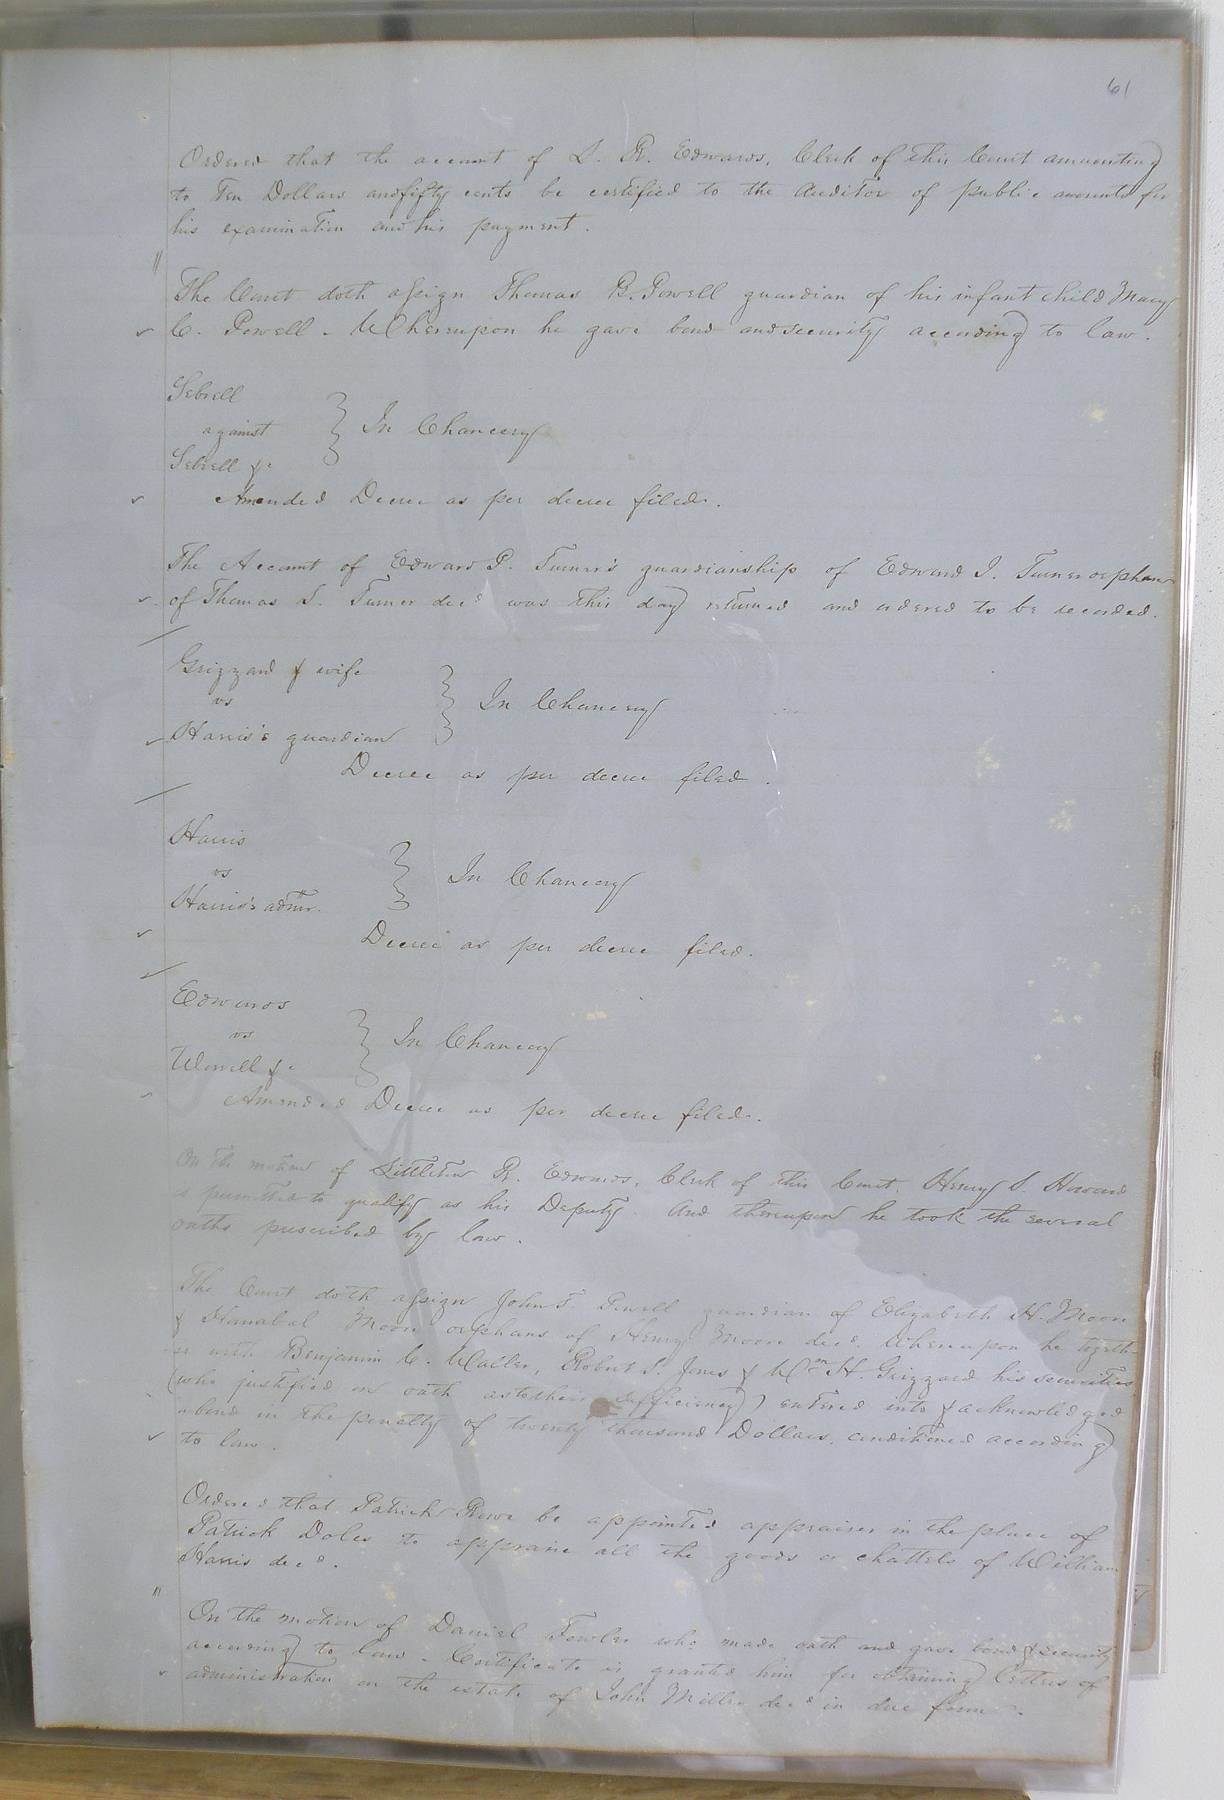 61
Ordered that the account of L. R. Edwards, Clerk of this Court amounting
to Ten Dollars and fifty cents be certified to the Auditor of public accounts for
his examination and his payment.
The Court doth assign Thomas B. Powell guardian of his infant child Mary
C. Powell. Whereupon he gave bond and security according to law.
Sebrell
against
In Chancery
Sebrell &c
Amended Decree as per decree filed.
The Account of Edward P. Turner's guardianship of Edward J. Turner orphan
of Thomas L. Turner decd was this day returned and ordered to be recorded.
Grizzard & wife
vs
In Chancery
Harris's guardian
Decree as per decree filed.
Harris
vs
In Chancery
Harris's admr.
Decree as per decree filed.
Edwards
vs
In Chancery
Worrell &c
Amended Decree as per decree filed.
On the motion of Littleton R. Edwards, Clerk of this Court, Henry S. Howard
is permitted to qualify as his Deputy. And thereupon he took the several
oaths prescribed by law.
The Court doth assign John T. Powell guardian of Elizabeth H. Moore
& Hanabal Moore orphans of Henry Moore decd. Whereupon he togeth-
er with Benjamin C. Waller, Robert S. Jones & Wm H. Grizzard his securities
(who justified on oath as to their sufficiency) entered into & acknowledged
a bond in the penalty of twenty thousand Dollars, conditioned according
to law.
Ordered that Patrick Rowe be appointed appraiser in the place of
Patrick Doles to appraise all the goods or chattels of William
Harris decd.
On the motion of Daniel Fowler who made oath and gave bond & security
according to law. Certificate is granted him for obtaining letters of
administration on the estate of John Miller decd in due form.